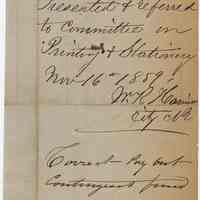 Presented & referred
to Committee on
Printing & Stationery
Nov 16th 1859
W. R.
City Clk
Correct Pay out
Contingent fund